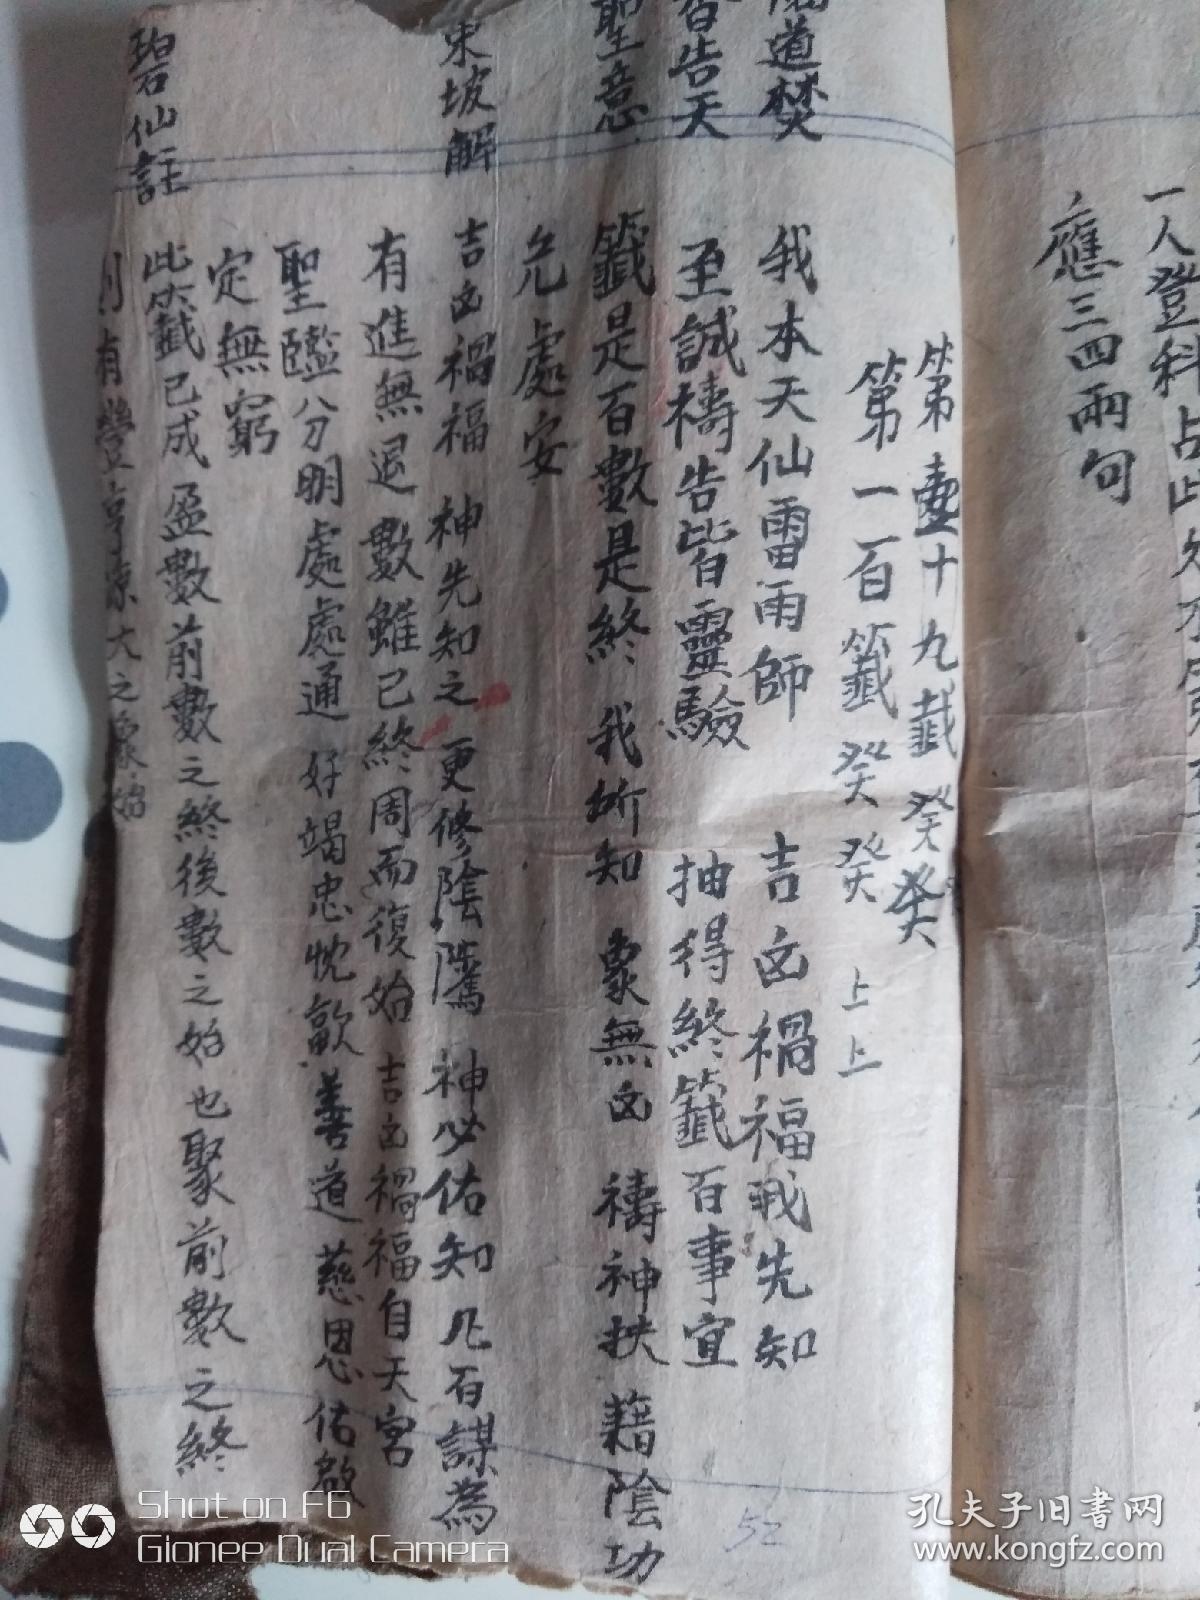 一人登科占此
應三四兩句
第壹十九韱癸癸
第一百籤癸癸上上
道焚
香告天
聖意
我本天仙雷雨師 吉凶禍福我先知
至誠禱告皆靈驗 抽得終籤百事宜
籤是百數是終 我所知 象無凶 禱神扶 藉陰功
允處安
東坡解
吉凶禍福 神先知之 更修陰隲 神必佑知 凡百謀為
有進無退 數雖已終 周而復始 吉凶禍福自天宮
聖鑑分明處處通 好竭忠忱歡善道 慈恩佑啟
定無窮
碧仙註
此籤已成盈數前數之終後數之始也聚前數之終
則有豐亨 大之象 始
52
Shot on F6
Gionee Dual Camera
孔夫子旧书网
www.kongfz.com